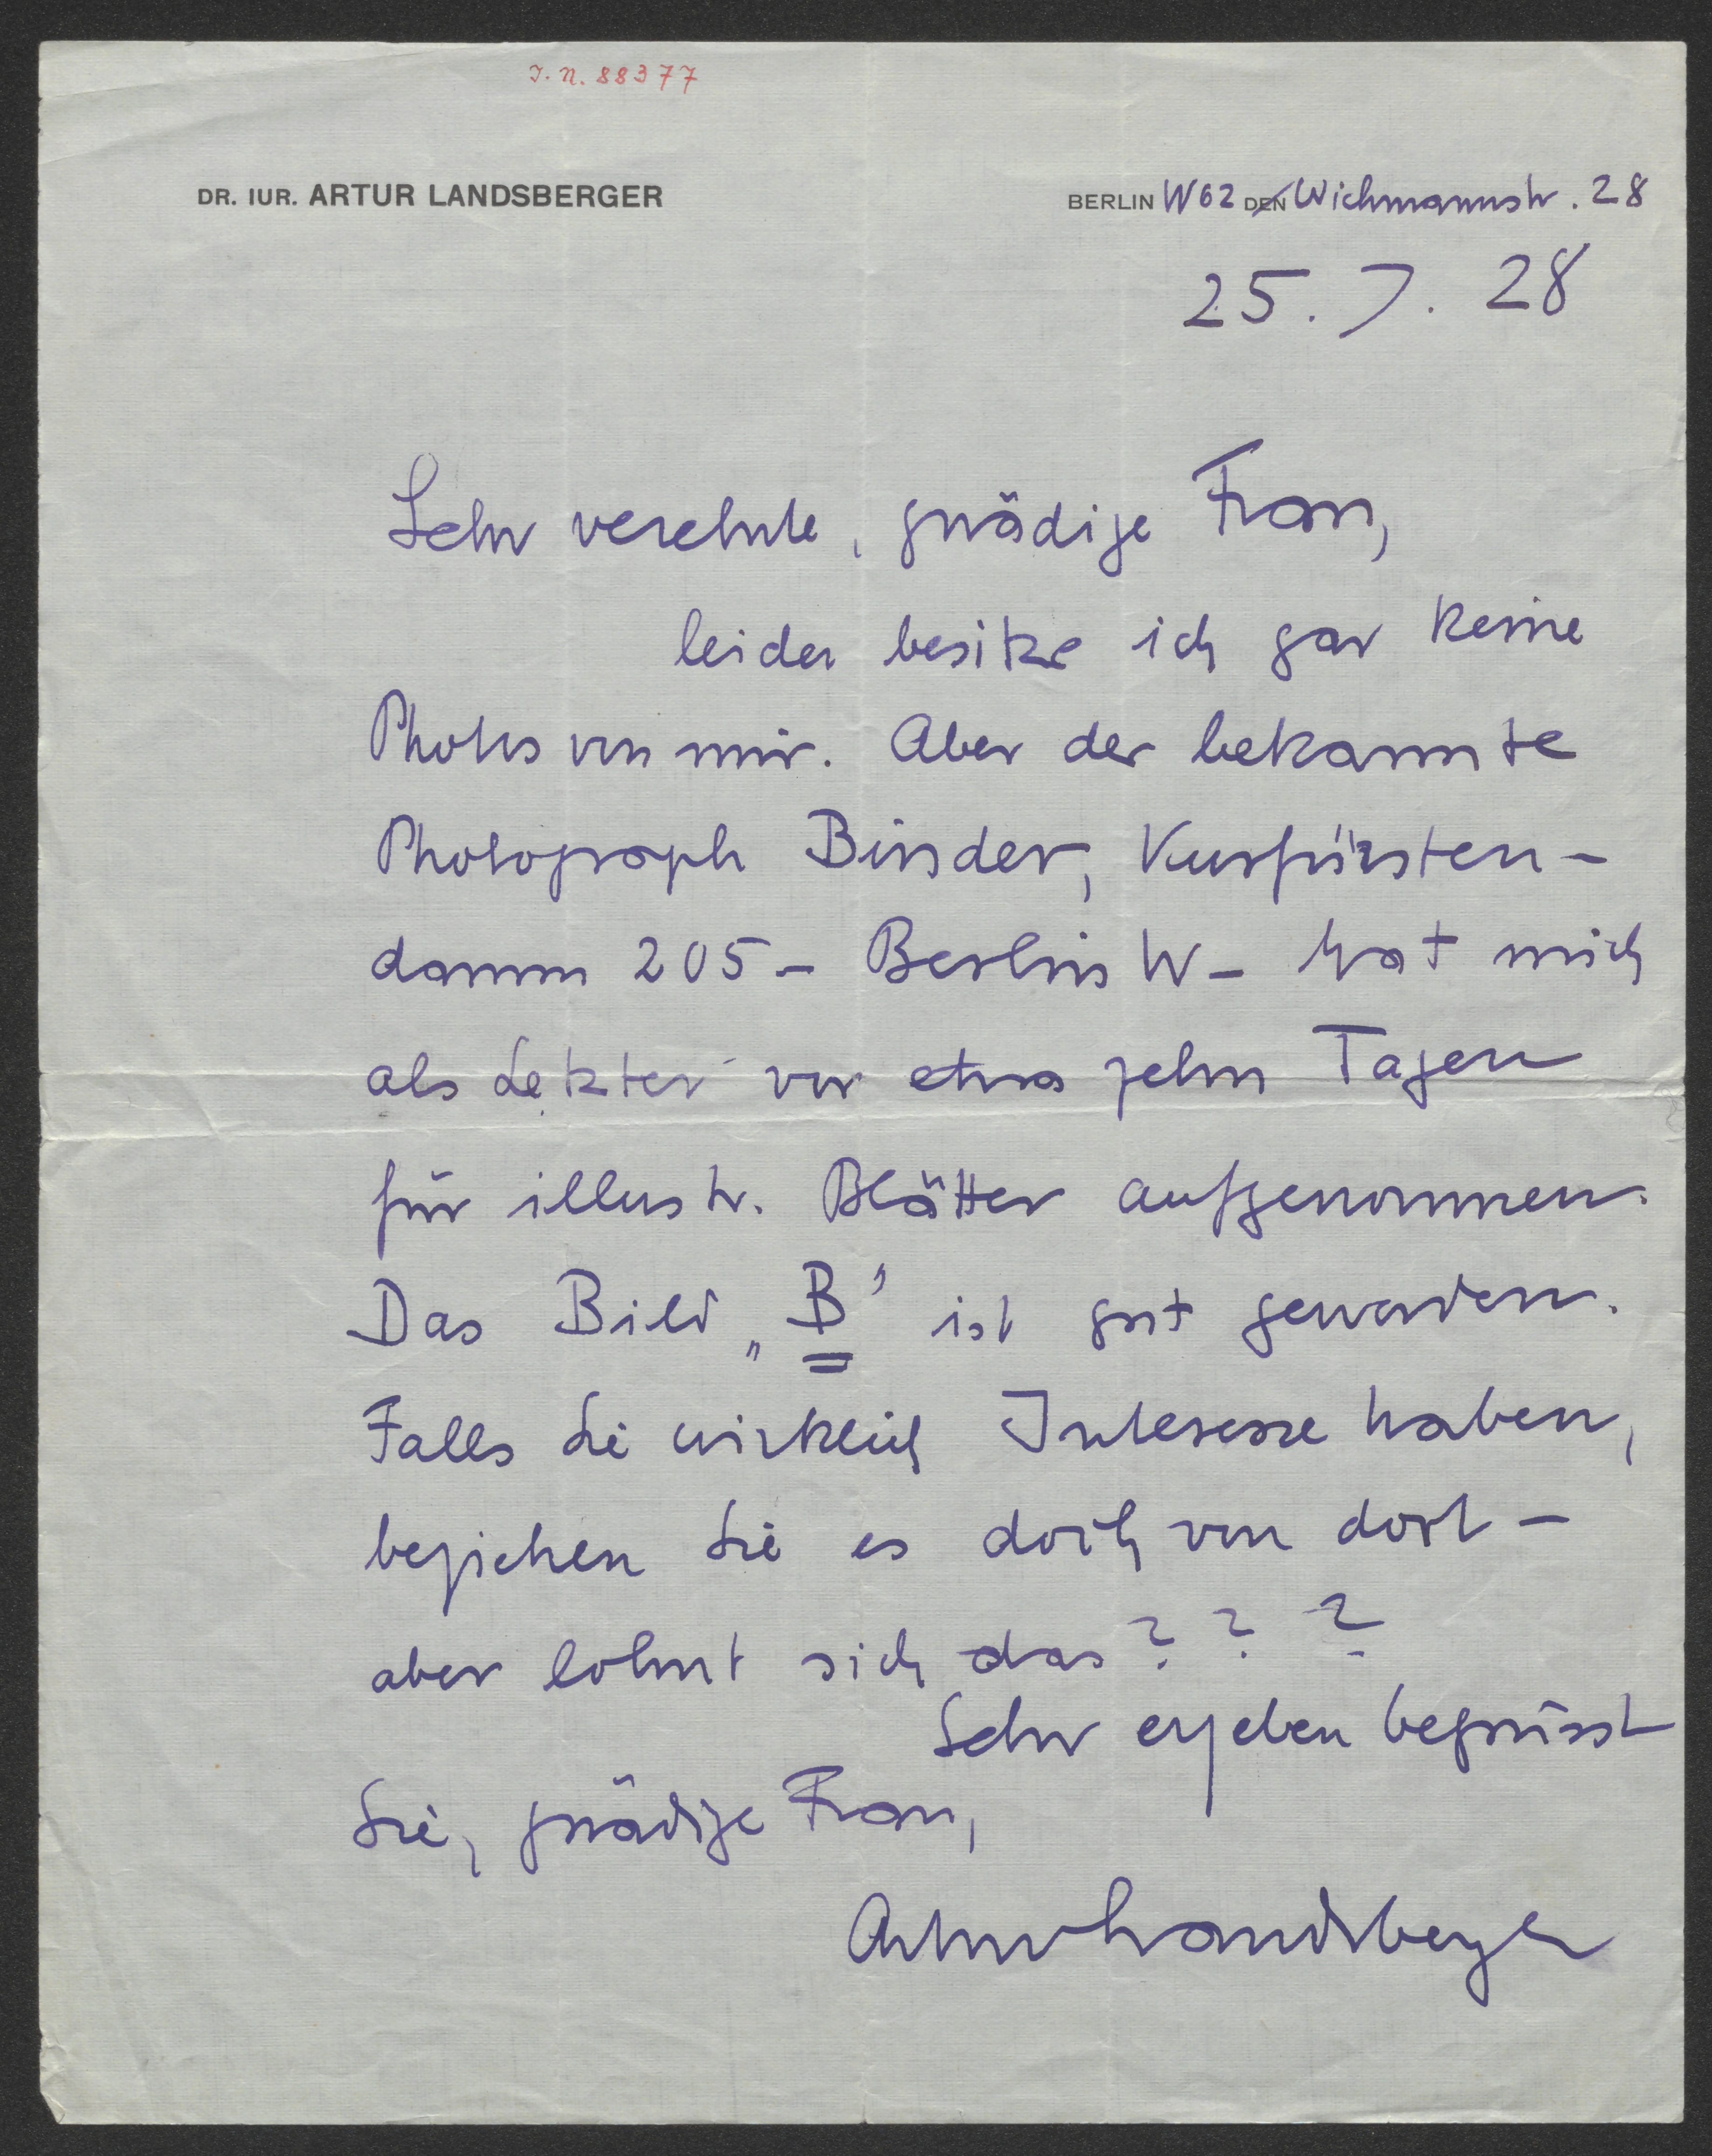 J. N. 88377
DR. IUR. ARTUR LANDSBERGER
BERLIN W62 DEN Wichmannstr. 28
25. 7. 28
Sehr verehrte, gnädige Frau,
leider besitze ich gar keine
Photos von mir. Aber der bekannte
Photograph Binder, Kurfürsten-
damm 205 – Berlin W – hat mich
als Letzter vor etwa zehn Tagen
für illustr. Blätter aufgenommen.
Das Bild „B" ist gut geworden.
Falls Sie wirklich Interesse haben,
beziehen Sie es doch von dort –
aber lohnt sich das? ? ?
Sehr ergeben begrüsst
Sie, gnädige Frau,
Artur Landsberger